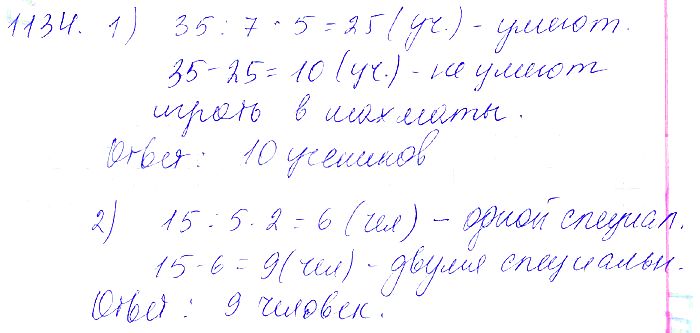 1134. 1) 35 : 7 · 5 = 25 (уч.) - умеют.
35 - 25 = 10 (уч.) - не умеют
играть в шахматы.
Ответ: 10 учеников
2) 15 : 5 · 2 = 6 (чел) - одной специал.
15 - 6 = 9 (чел) - двумя специальн.
Ответ: 9 человек.